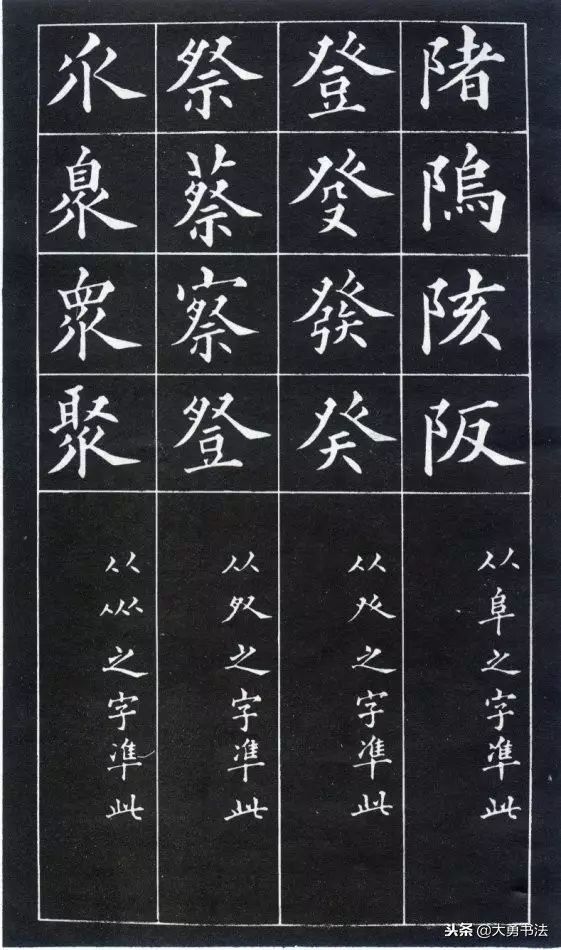 陼隖陔阪
从阜之字準此
登癹發癸
从癶之字準此
祭蔡察豋
从之字準此
乑臮衆聚
从㐺之字準此
头条 @大勇书法